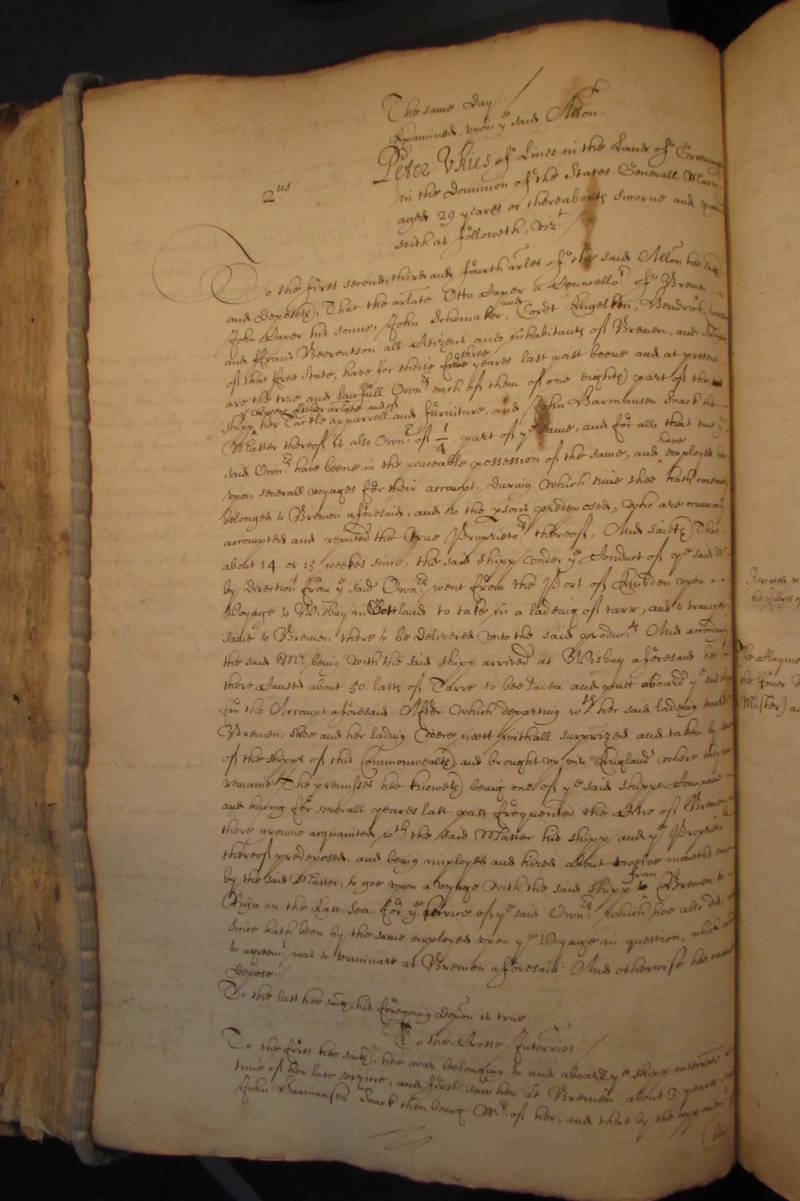 The same Day
Examined upon ye said Allon.
2us
Peter Ukies of Lines in the Land of
in the Dominion of the States Generall
aged 29 yeares or thereabouts sworne and
saith as followeth, vizt
To the first second, third and fourth arlēs of the said Allon hee saith
and Deposeth, That the arlate Otto a Councellor of Bremen
John his sonne, John Schomaker, and Cordt Engelken, Hendrick
and Frans Beerentson all Citizens and inhabitants of Bremen, and
of that free State, have for theise three yeares last past beene and at present
are the true and lawfull Ownrs each of them of one eighth part of the
shipp her Tackle apparrell and furniture, and John Barmhausen Snack the
Master thereof is also Ownr of 1/4 part of ye same, and for all that time ye
said Ownrs have beene in the peaceable possession of the same, and have employed her
upon severall voyages for their accompt, During which time shee hath
belonged to Bremen aforesaid, and to the psons predeposed, who are
accompted and reputed the true Proprietors thereof, And saith That
about 14 or 15 weekes since, the said shipp under ye Conduct of ye said Mr
by direction from ye said Ownrs went from the Port of Embden upon a
Voyage to Wisbuy in Gottland to take in a ladeing of tarr, and to transport
same to Bremen there to be delivered unto the said And
the said Mr being with the said shipp arrived at Wisbuy aforesaid hee
there Caused about 50 lasts of Tarre to bee taken and put aboard ye said
for the Accompt aforesaid. After which departing wth her said ladeing towards
Bremen, shee and her lading were mett withall surprized and taken by
of the shipps of this Commonwealth and brought up into England where they
remaine The premisses hee knoweth being one of ye said shipps Company
and having for severall yeares last past frequented the of Bremen
there growne acquainted wth the said Master his shipp and ye
thereof predeposed, and being imployed and hired about twelve moneths since
by the said Master, to goe upon a voyage with the said shipp from Bremen to
Riga in the East Sea for ye service of ye said Ownrs which hee also did,
since hath been by the same employed upon ye Voyage in question, which
to agreemt was to terminate at Bremen aforesaid. And otherwise hee cannot
depose.
To the last hee saith his foregoing Deposn is true.
To the Crosse Interries.
To the first hee saith, hee was belonging to and aboard ye shipp interrate at
time of her late seizure, and first saw her at Bremen about 3 yeares
John Barmhausen Snack then being Mr of her, and that by the